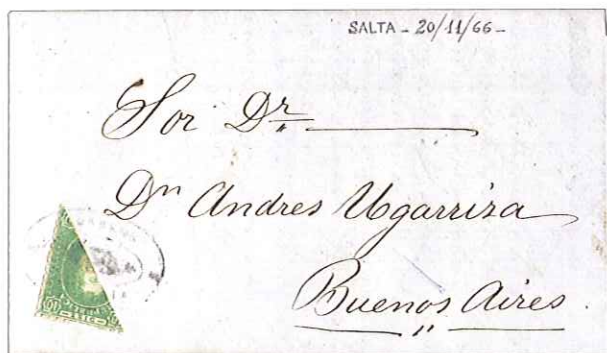 SALTA - 20/11/66 -
Sor Dr.
Dn Andres Ugarriza
Buenos Aires